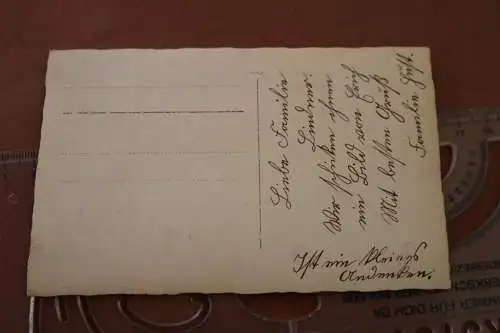 Liebe Familie
Lindner.
Wir schicken ihnen
ein Bild von Erich
Mit besten Gruß
Familie
Ist ein kleines
Andenken.